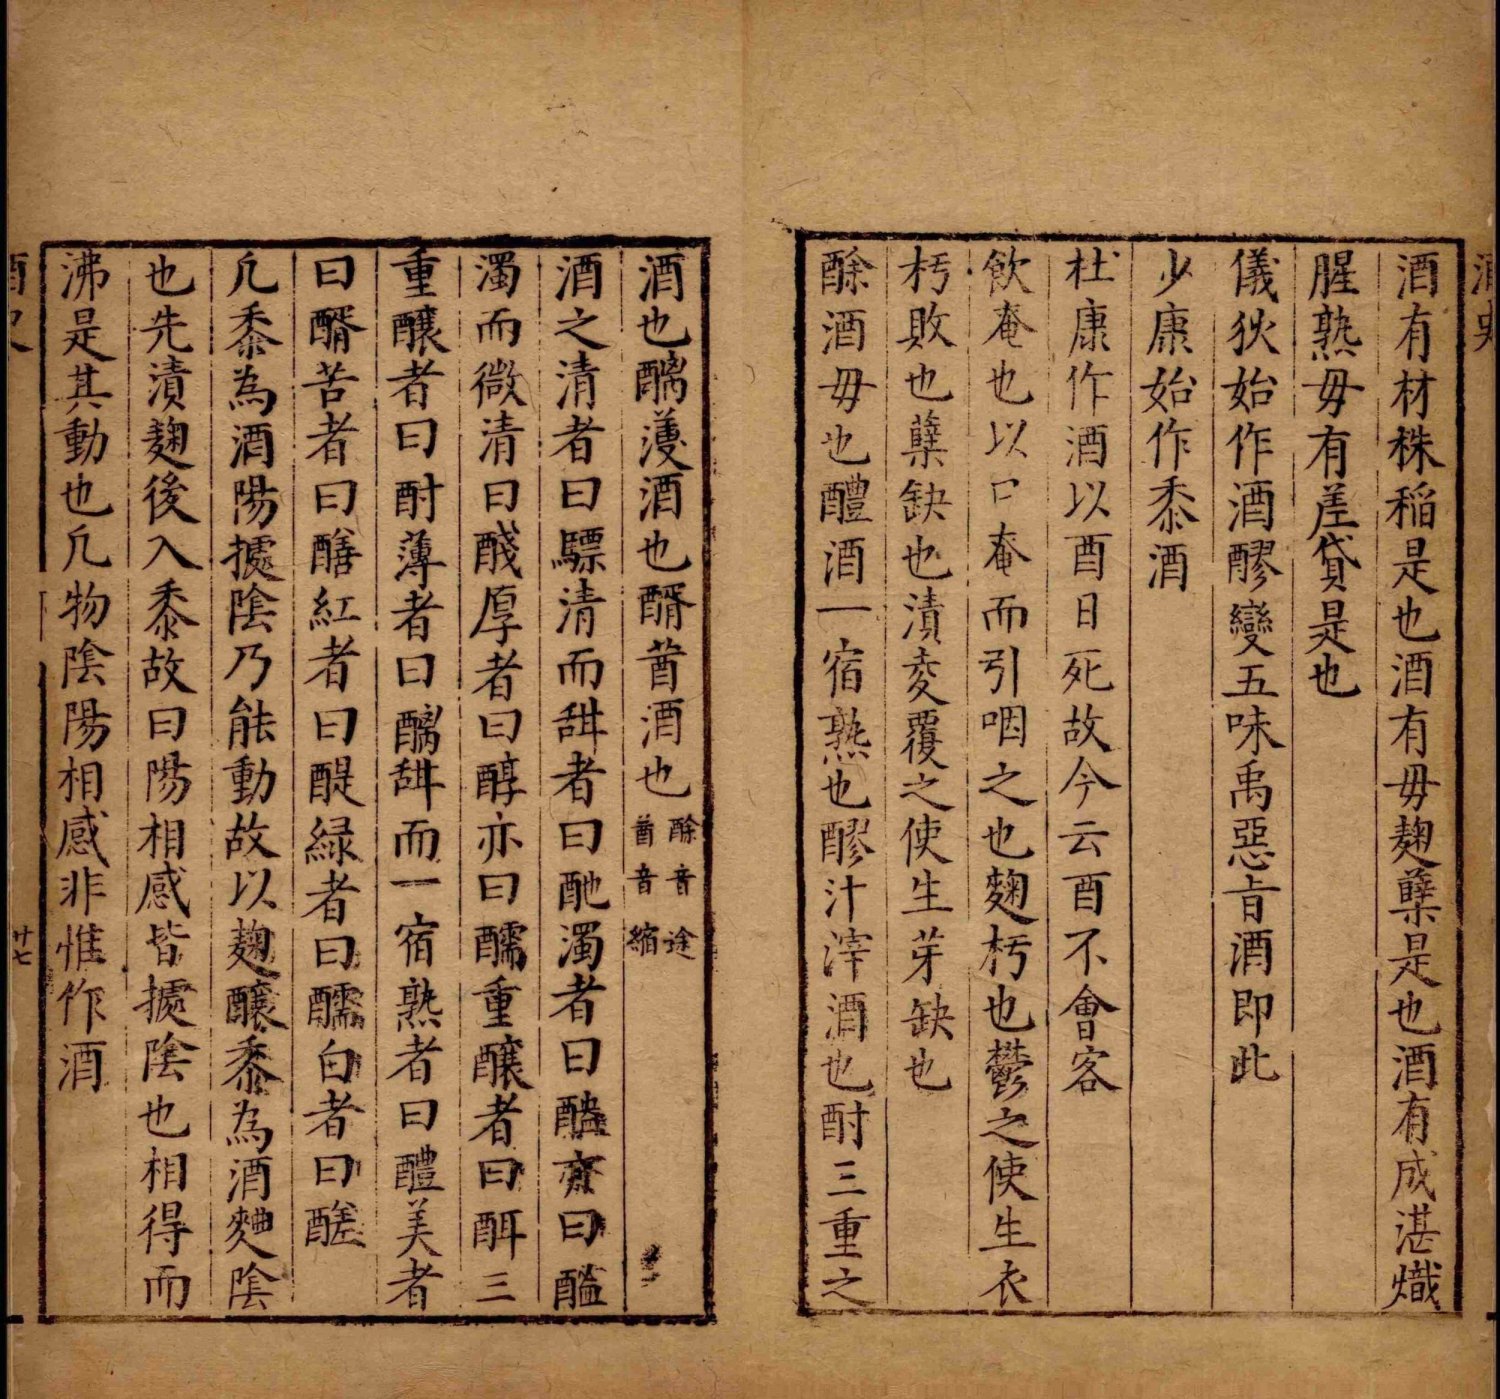 酒有材株稲是也酒有毋麹糵是也酒有成湛熾
腥熟毋有差貸是也
儀狄始作酒醪變五味禹惡旨酒即此
少康始作黍酒
杜康作酒以酉日死故今云酉不會客
飲奄也以口奄而引咽之也麴朽也鬱之使生衣
朽敗也糵缺也漬麦覆之使生芽缺也
酴酒毋也醴酒一宿熟也醪汁滓酒也酎三重之
酒也醨薄酒也醑莤酒也酴音途莤音縮
酒之清者曰醥清而甜者曰酏濁者曰醠亦曰醢
濁而微清曰醆厚者曰醇亦曰醹重釀者曰酲三
重釀者曰酎薄者曰醨甜而一宿熟者曰醴美者
曰醑苦者曰醰紅者曰醍緑者曰醽白者曰醝
凢黍為酒陽據陰乃能動故以麹釀黍為酒麯陰
也先漬麹後入黍故曰陽相感皆據陰也相得而
沸是其動也凢物陰陽相感非惟作酒
酒史
廿七